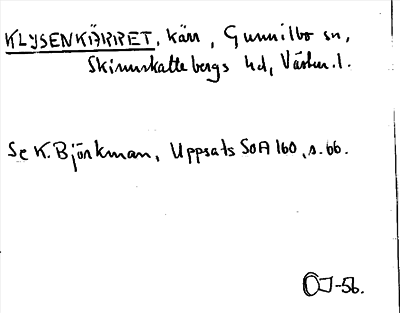 KLYSENKÄRRET, kärr, Gunnilbo sn,
Skinnskattebergs hd, Västm. l.
Se K. Björkman, Uppsats SOA 160, s. 66.
OJ-56.